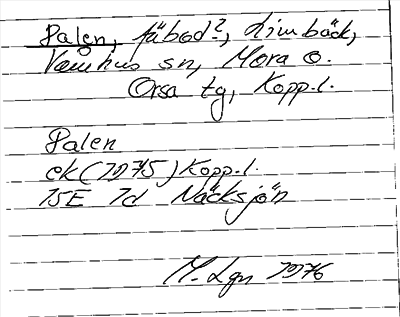 Palen, fäbod?, Limbäck,
Våmhus sn, Mora o.
Orsa tg, Kopp.l.
Palen
ek (1975) Kopp.l.
15E 7d Näcksjön
M. Lgn 1976